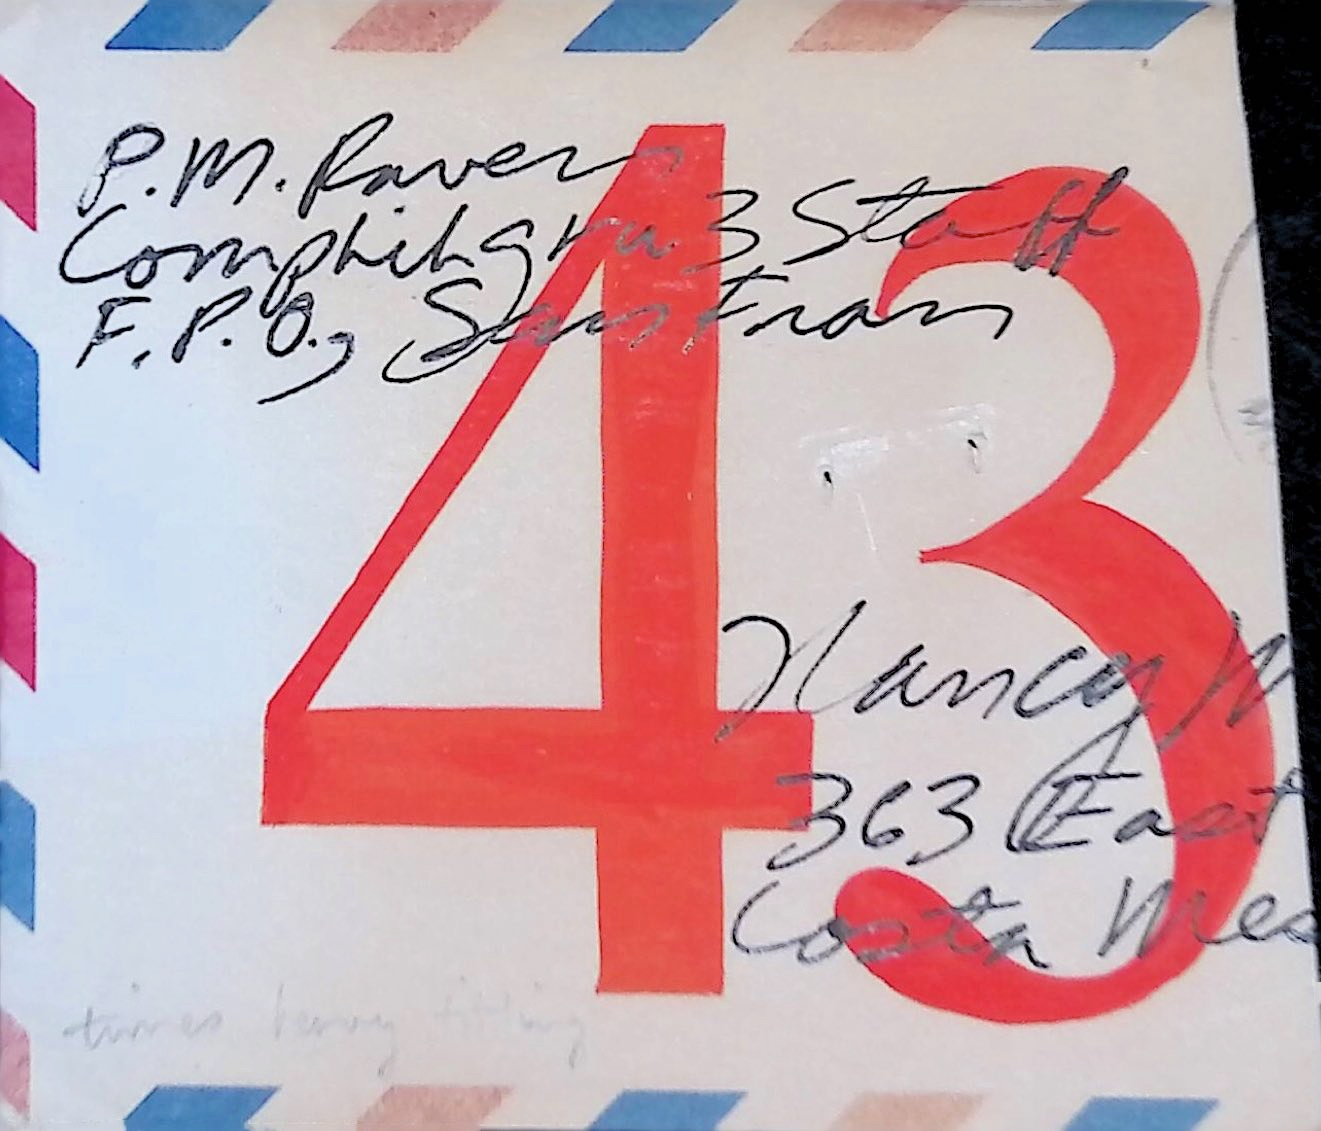 P.M. Raven
Comphibgru 3 Staff
F.P.O., San Fran
43
Nancy M
363 East
Costa Mes
times heavy titling